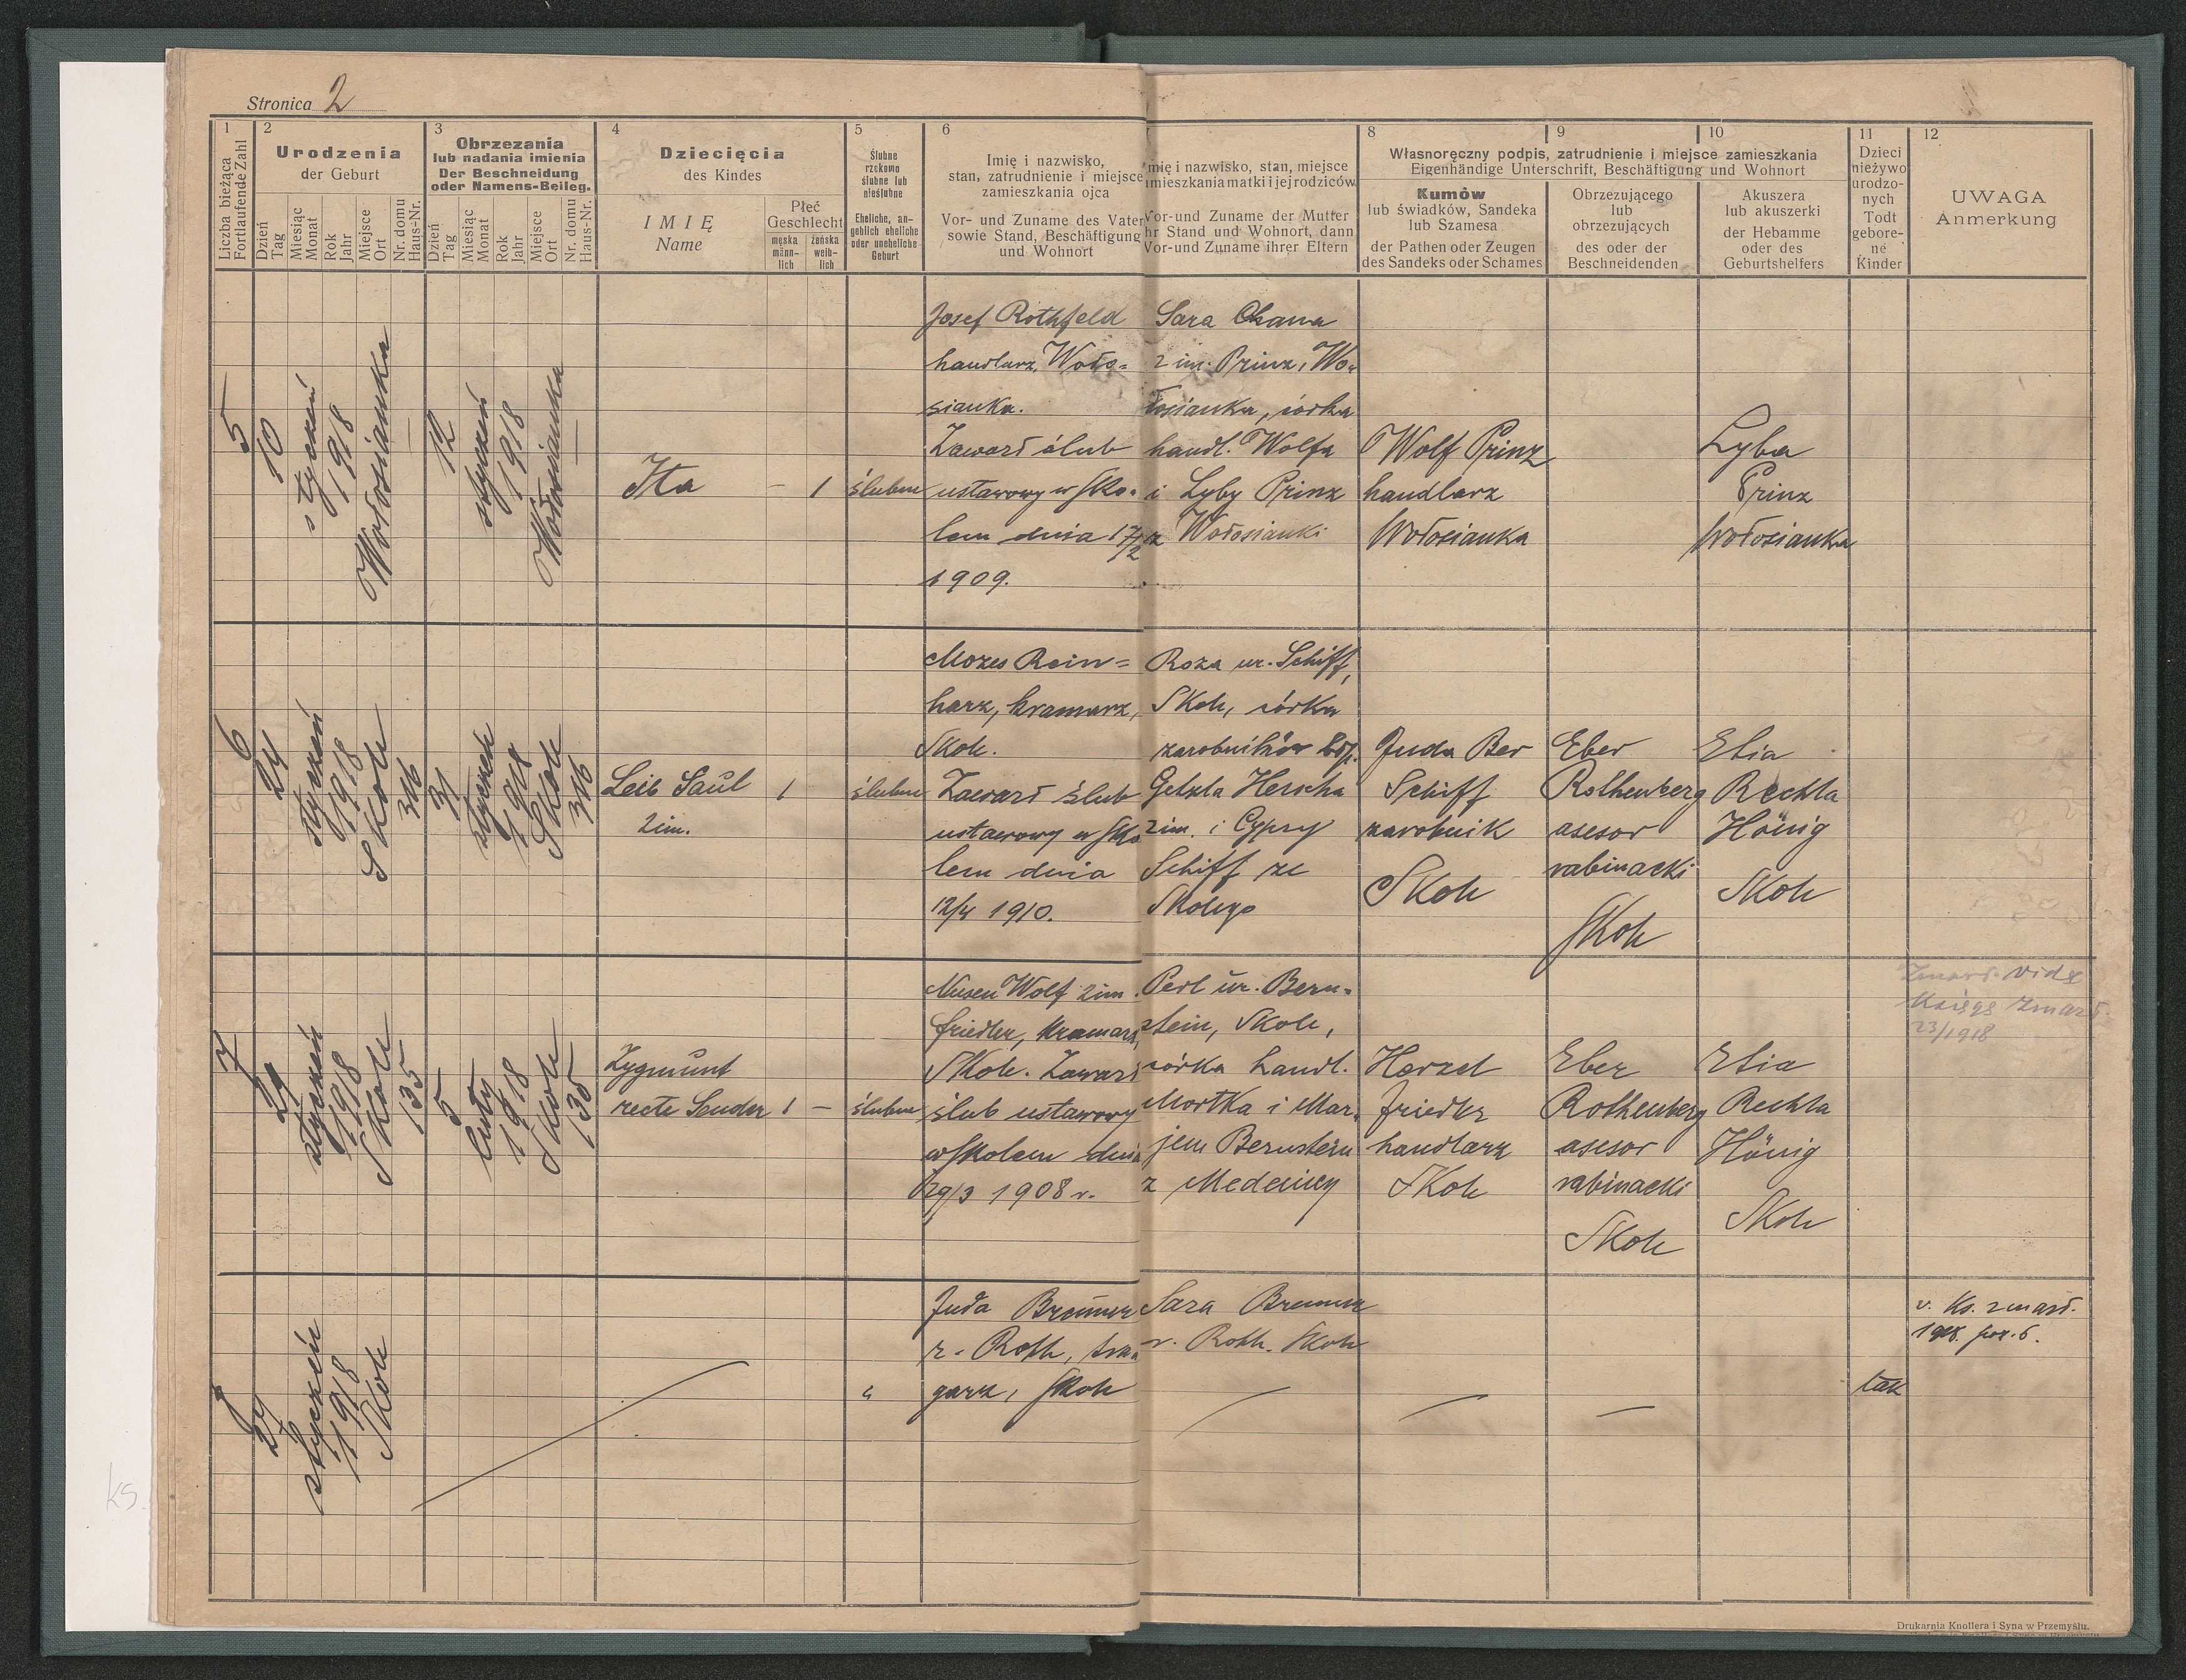 Stronica 2
1
Liczba bieżąca
Fortlaufende Zahl
2
Urodzenia
der Geburt
Dzień
Tag
Miesiąc
Monat
Rok
Jahr
Miejsce
Ort
Nr. domu
Haus-Nr.
3
Obrzezania
lub nadania imienia
Der Beschneidung
oder Namens-Beileg.
Dzień
Tag
Miesiąc
Monat
Rok
Jahr
Miejsce
Ort
Nr. domu
Haus-Nr.
4
Dziecięcia
des Kindes
IMIĘ
Name
Płeć
Geschlecht
męska
männ-
lich
żeńska
weib-
lich
5
Ślubne
rzekomo
ślubne lub
nieślubne
Eheliche, an-
geblich eheliche
oder uneheliche
Geburt
6
Imię i nazwisko,
stan, zatrudnienie i miejsce
zamieszkania ojca
Vor- und Zuname des Vater
sowie Stand, Beschäftigung
und Wohnort
mię i nazwisko, stan, miejsce
amieszkania matki i jej rodziców
Vor-und Zuname der Mutter
hr Stand und Wohnort, dann
Vor-und Zuname ihrer Eltern
Własnoręczny podpis, zatrudnienie i miejsce zamieszkania
Eigenhändige Unterschrift, Beschäftigung und Wohnort
8
Kumów
lub świadków, Sandeka
lub Szamesa
der Pathen oder Zeugen
des Sandeks oder Schames
9
Obrzezującego
lub
obrzezujących
des oder der
Beschneidenden
10
Akuszera
lub akuszerki
der Hebamme
oder des
Geburtshelfers
11
Dzieci
nieżywo
urodzo-
nych
Todt
gebore-
ne
Kinder
12
UWAGA
Anmerkung
5
10
styczeń
1918
Wołosianka
—
12
styczeń
1918
Wołosianka
—
Ita
– 1
ślubne
Josef Rothfeld
handlarz, Woło=
sianka.
Zawarł ślub
ustawowy w Sko=
lem dnia 17/2
1909.
Sara Chana
2 im. Prinz, Wo=
łosianka, córka
handl. Wolfa
i Lyby Prinz
z Wołosianki
Wolf Prinz
handlarz
Wołosianka
Lyba
Prinz
Wołosianka
6
24
styczeń
1918
Skole
316
31
styczeń
1918
Skole
316
Leib Saul
2 im.
1
ślubne
Mozes Rein=
harz, kramarz,
Skole.
Zawarł ślub
ustawowy w Sko
lem dnia
12/4 1910.
Roza ur. Schiff,
Skole, córka
zarobników
Getzla Herscha
2 im. i Cypry
Schiff ze
Skolego
Juda Ber
Schiff
zarobnik
Skole
Eber
Rothenberg
asesor
rabinacki
Skole
Elia
Rechta
Hönig
Skole
7
29
styczeń
1918
Skole
135
5
luty
1918
Skole
135
Zygmunt
recte Sender
1 –
ślubne
Nusen Wolf 2 im.
Friedler, kramarz,
Skole. Zawarł
ślub ustawowy
w Skolem dnia
29/3 1908 r.
Perl ur. Bern=
stein, Skole,
córka handl.
Mortka i Mar=
jem Bernstein
z Medenicy
Herzel
Friedler
handlarz
Skole
Eber
Rothenberg
asesor
rabinacki
Skole
Elia
Rechta
Hönig
Skole
Zmarł. vide
Księgę zmarł.
23/1918
8
29
styczeń
1918
Skole
"
Juda Brenner
r. Roth, tra=
garz, Skole
Sara Brenner
r. Roth. Skole
tak
v. Ks. zmarł.
1918. poz. 6.
ks.
Drukarnia Knollera i Syna w Przemyślu.